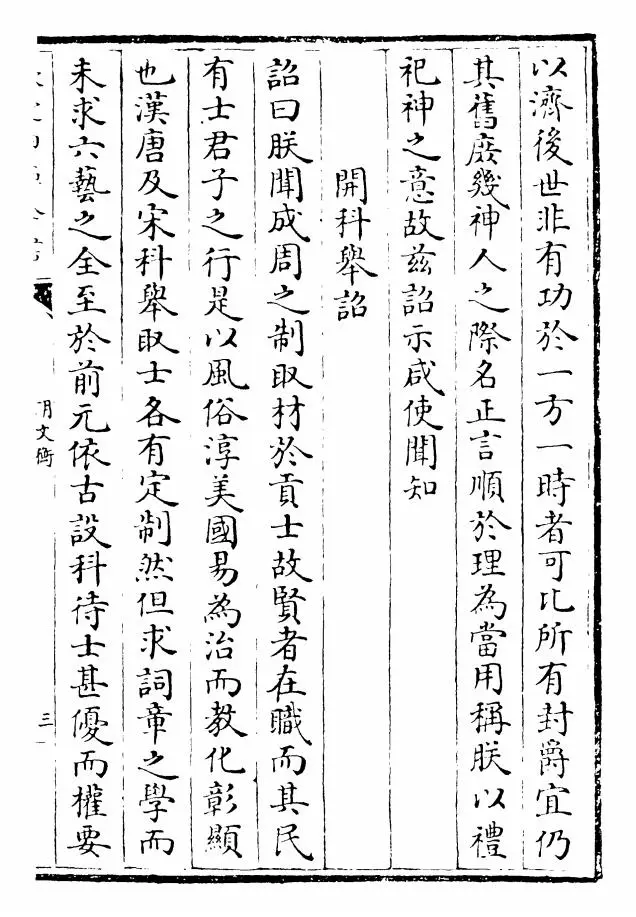 以濟後世非有功於一方一時者可比所有封爵宜仍
其舊庶幾神人之際名正言順於理為當用稱朕以禮
祀神之意故兹詔示咸使聞知
開科舉詔
詔曰朕聞成周之制取材於貢士故賢者在職而其民
有士君子之行是以風俗淳美國易為治而教化彰顯
也漢唐及宋科舉取士各有定制然但求詞章之學而
未求六藝之全至於前元依古設科待士甚優而權要
明文衡
三